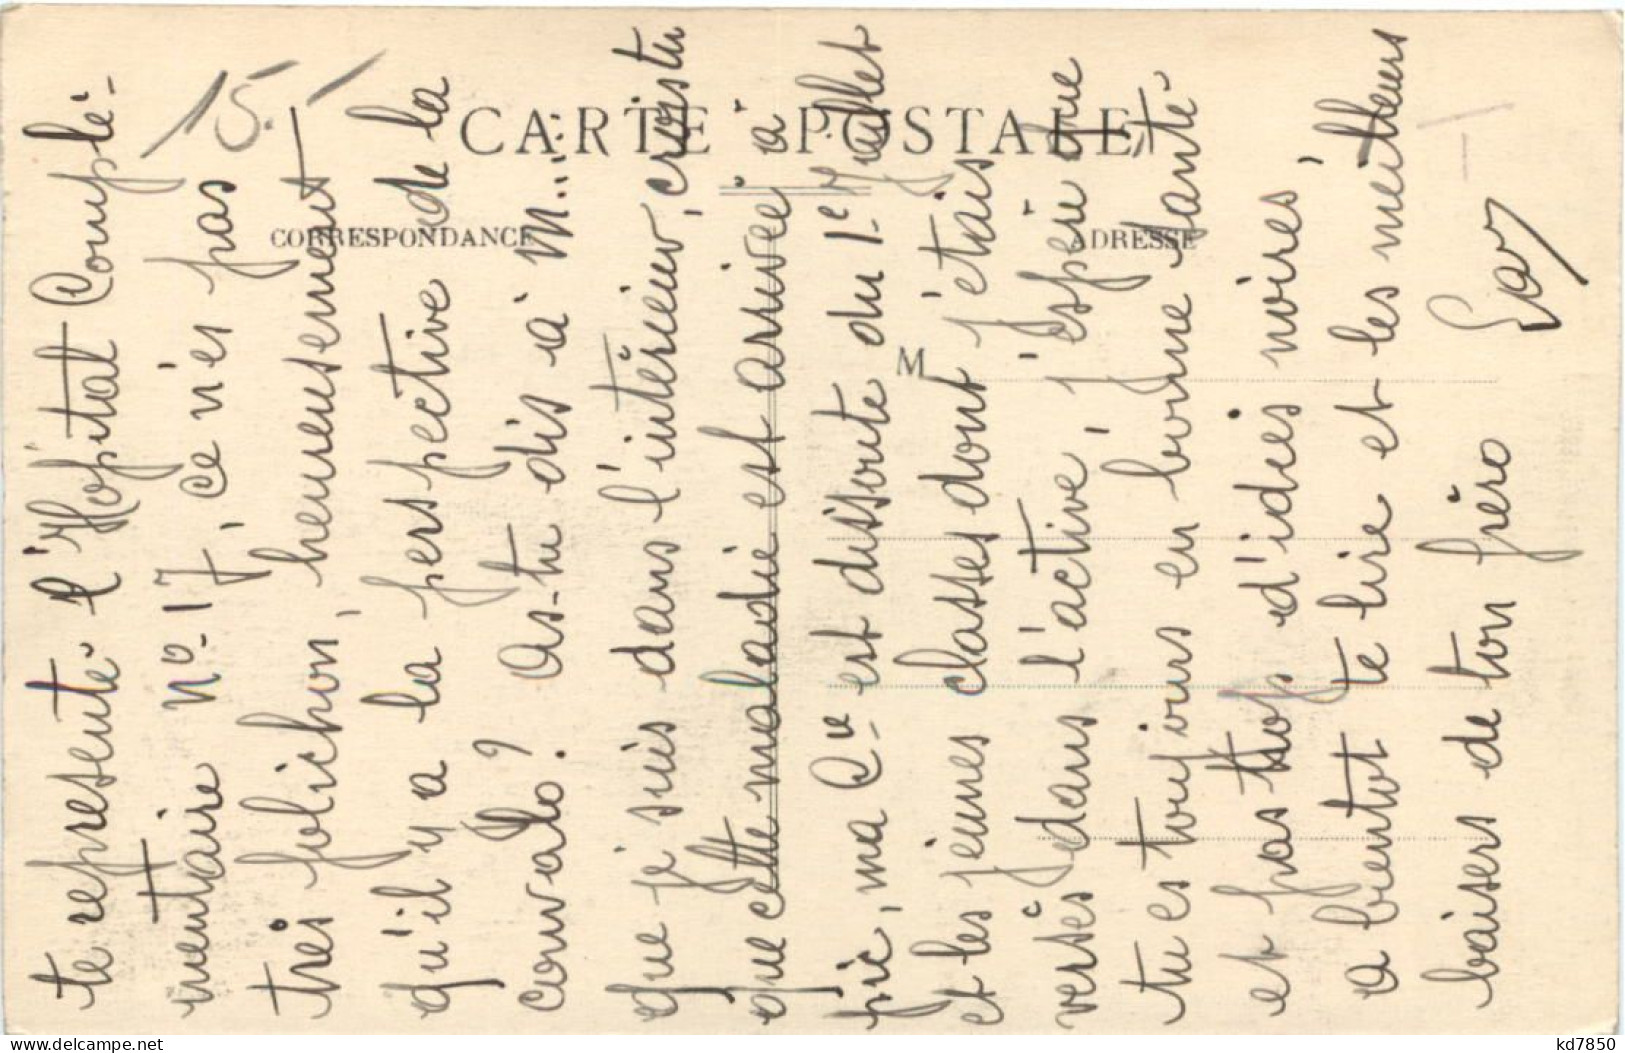 CARTE POSTALE
CORRESPONDANCE
ADRESSE
M
15.-
te représente l'Hôpital Complé-
mentaire No 17, ce n'es pas
très folichon, heureusement
qu'il y a la perspective de la
convalo? As-tu dis à M...
que je suis dans l'intérieur, crois tu
que cette maladie est arrivée à
pic, ma Cie est dissoute du 1er Juillet
et les jeunes classes dont j'étais
versés dans l'active, j'espère que
tu es toujours en bonne santé
et pas trop d'idées noires,
a bientot te lire et les meilleurs
baisers de ton frèro
kd7850